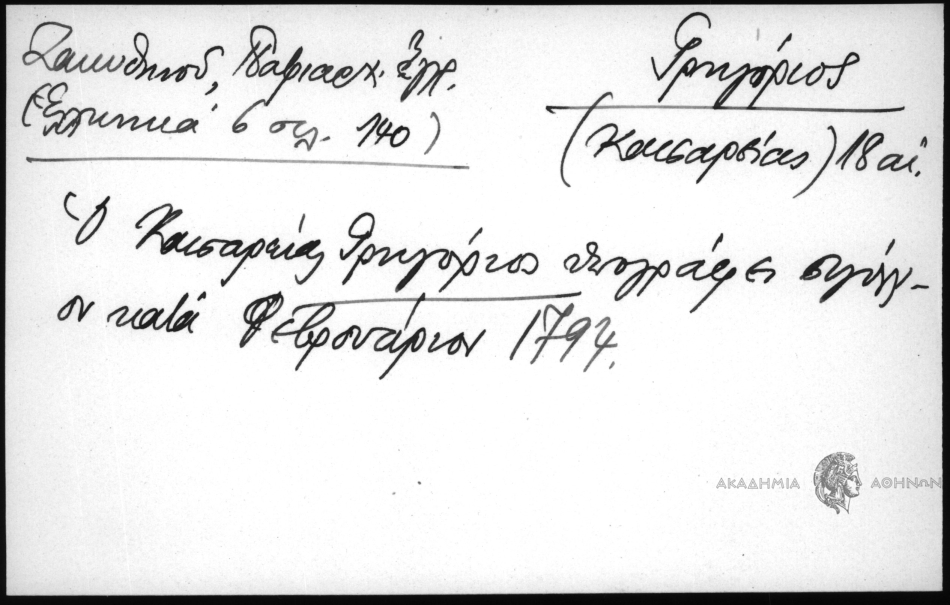 Ζακυθηνοῦ, Πατριαρχ. ἔγγρ.
(Ἑλληνικά 6 σελ. 140)
Γρηγόριος
(Καισαρείας) 18 αἰ.
Ὁ Καισαρείας Γρηγόριος ὑπογράφει σιγίλλι-
ον κατά Φεβρουάριον 1794.
ΑΚΑΔΗΜΙΑ ΑΘΗΝΩΝ